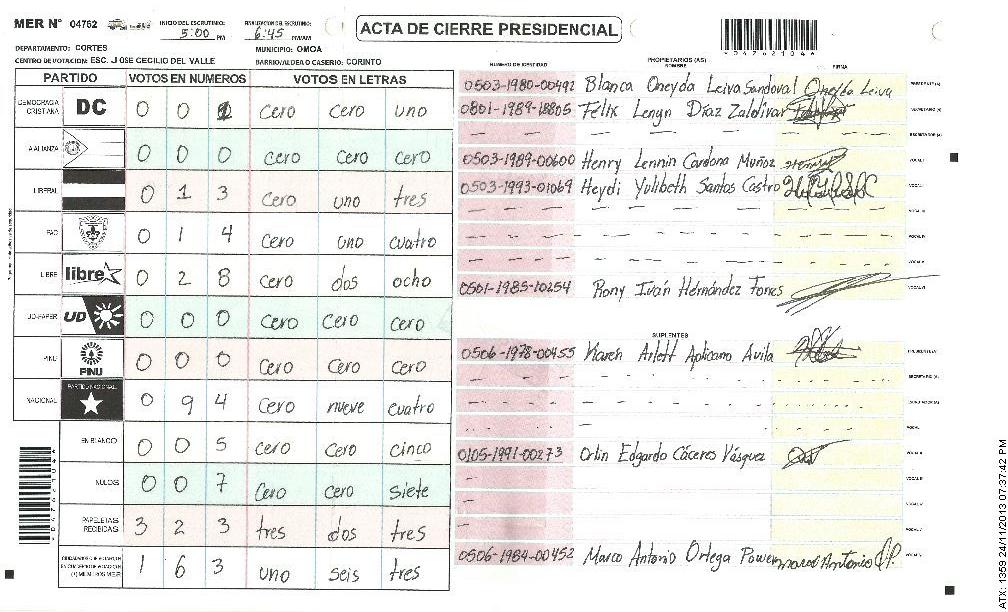 MER N° 04762 INICIO DEL ESCRUTINIO: 5:00 PM FINALIZACION DEL ESCRUTINIO: 6:45 PM/AM ACTA DE CIERRE PRESIDENCIAL
DEPARTAMENTO: CORTES MUNICIPIO: OMOA
CENTRO DE VOTACION: ESC. JOSE CECILIO DEL VALLE BARRIO/ALDEA O CASERIO: CORINTO
PARTIDO VOTOS EN NUMEROS VOTOS EN LETRAS
DEMOCRACIA CRISTIANA DC 0 0 1 cero cero uno
A.ALIANZA 0 0 0 cero cero cero
LIBERAL 0 1 3 cero uno tres
FAO 0 1 4 cero uno cuatro
LIBRE libre 0 2 8 cero dos ocho
UD-FAPER UD 0 0 0 cero cero cero
PINU PINU 0 0 0 cero cero cero
NACIONAL PARTIDO NACIONAL 0 9 4 cero nueve cuatro
EN BLANCO 0 0 5 cero cero cinco
NULOS 0 0 7 cero cero siete
PAPELETAS RECIBIDAS 3 2 3 tres dos tres
1 6 3 uno seis tres
PROPIETARIOS (AS)
NUMERO DE IDENTIDAD NOMBRE FIRMA
0503-1980-00492 Blanca Oneyda Leiva Sandoval Oneyda Leiva PRESIDENTE (A)
0801-1989-18805 Felix Lenyn Díaz Zaldívar SECRETARIO (A)
ESCRUTADOR (A)
0503-1989-00600 Henry Lennin Cardona Muñoz VOCAL I
0503-1993-01069 Heydi Yulibeth Santos Castro VOCAL II
VOCAL III
VOCAL IV
VOCAL V
0501-1985-10254 Rony Iván Hernández Torres VOCAL VI
SUPLENTES
0506-1978-00455 Karen Arlett Aplicano Avila PRESIDENTE (A)
SECRETARIO (A)
ESCRUTADOR (A)
VOCAL I
0105-1991-00273 Orlin Edgardo Cáceres Vásquez VOCAL II
0506-1984-00452 Marco Antonio Ortega Marco Antonio
ATX: 1359 24/11/2013 07:37:42 PM